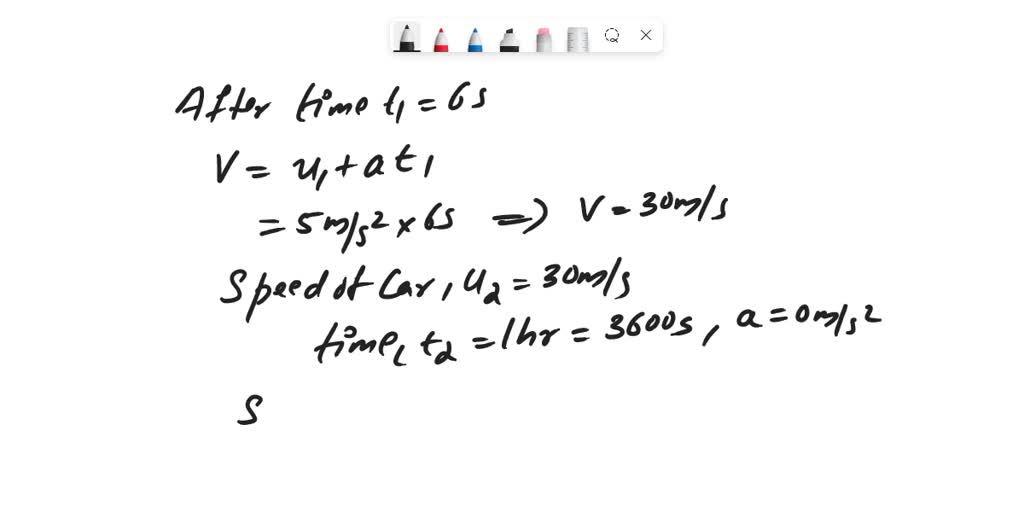 After time t₁ = 6s
V = u₁ + a t₁
= 5m/s² × 6s ⇒ V = 30m/s
Speed of Car, u₂ = 30m/s
time, t₂ = 1hr = 3600s, a = 0m/s²
S